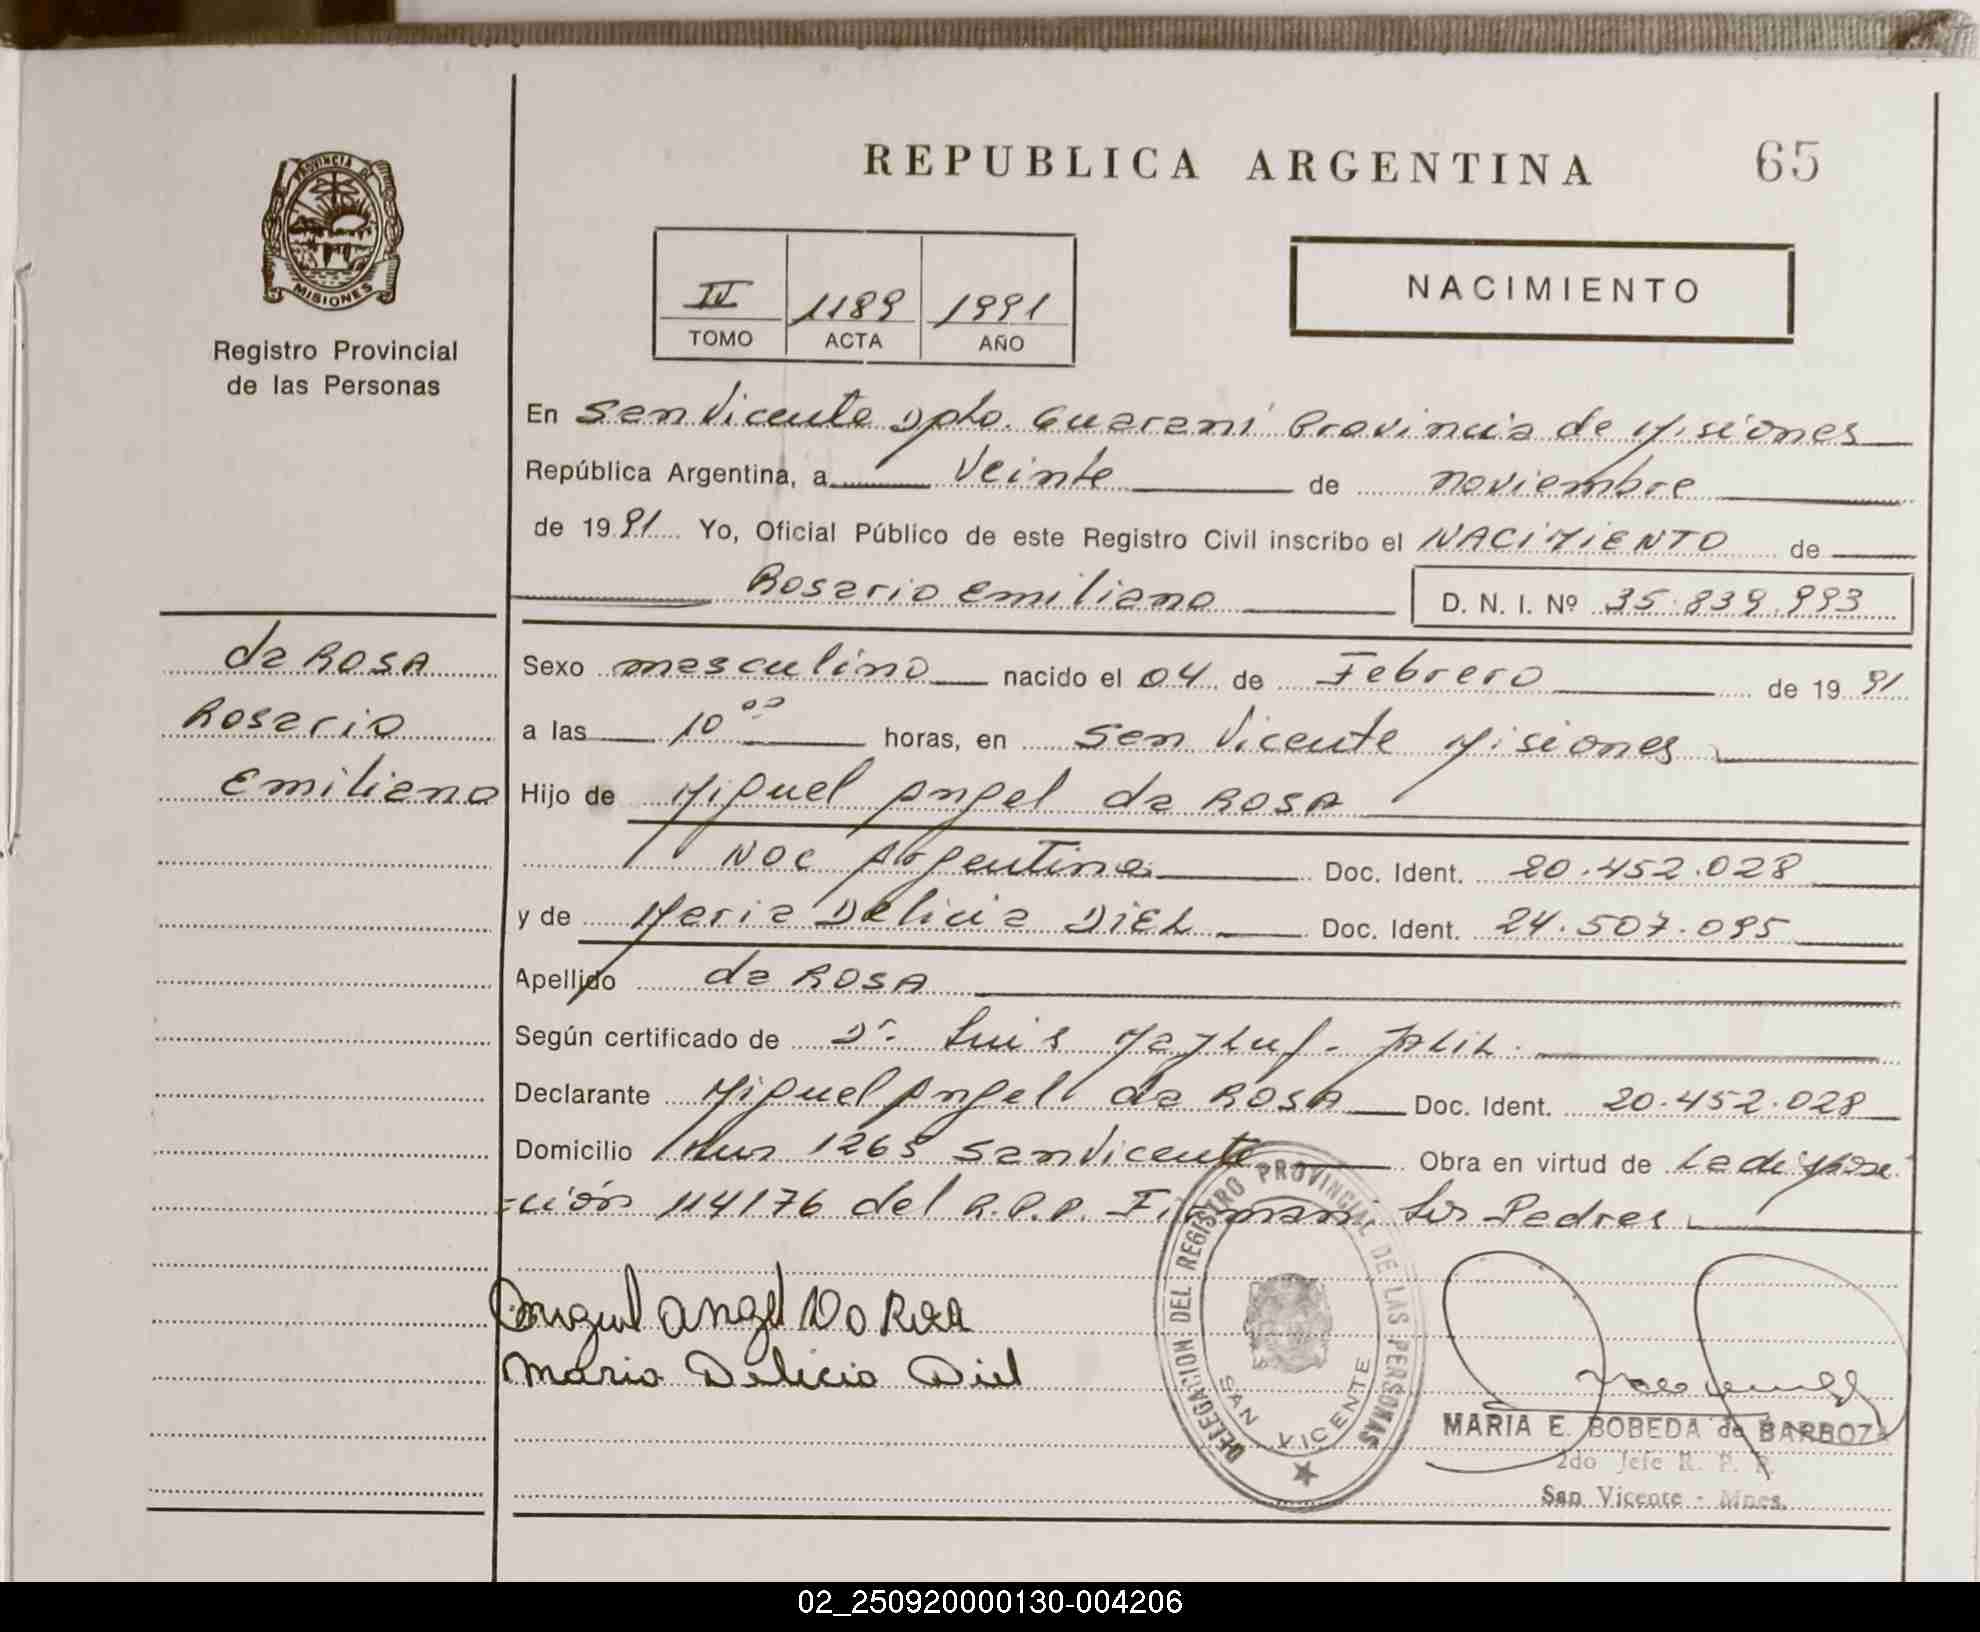 PROVINCIA DE
MISIONES
Registro Provincial
de las Personas
REPUBLICA ARGENTINA
65
IV 1189 1991
TOMO ACTA AÑO
NACIMIENTO
En San Vicente Dpto. Guaraní Provincia de Misiones
República Argentina, a veinte de noviembre
de 1991 Yo, Oficial Público de este Registro Civil inscribo el NACIMIENTO de
Rosario Emiliano D. N. I. Nº 35.839.993
da ROSA
Rosario
Emiliano
Sexo masculino nacido el 04 de Febrero de 1991
a las 10 00 horas, en San Vicente Misiones
Hijo de Miguel Angel da ROSA
NAC Argentina Doc. Ident. 20.452.028
y de Maria Delicia DIEL Doc. Ident. 24.507.095
Apellido da ROSA
Según certificado de Dr. Luis
Declarante Miguel Angel da ROSA Doc. Ident. 20.452.028
Domicilio 1265 San Vicente Obra en virtud de La disposi
-ción 114176 del R.P.P. Firman: Los Padres
Miguel Angel Da Rosa
Maria Delicia Diel
DELEGACION DEL REGISTRO PROVINCIAL DE LAS PERSONAS
SAN VICENTE
MARIA E. BOBEDA de BARBOZA
2do Jefe R. P. P.
San Vicente - Mnes.
02_250920000130-004206